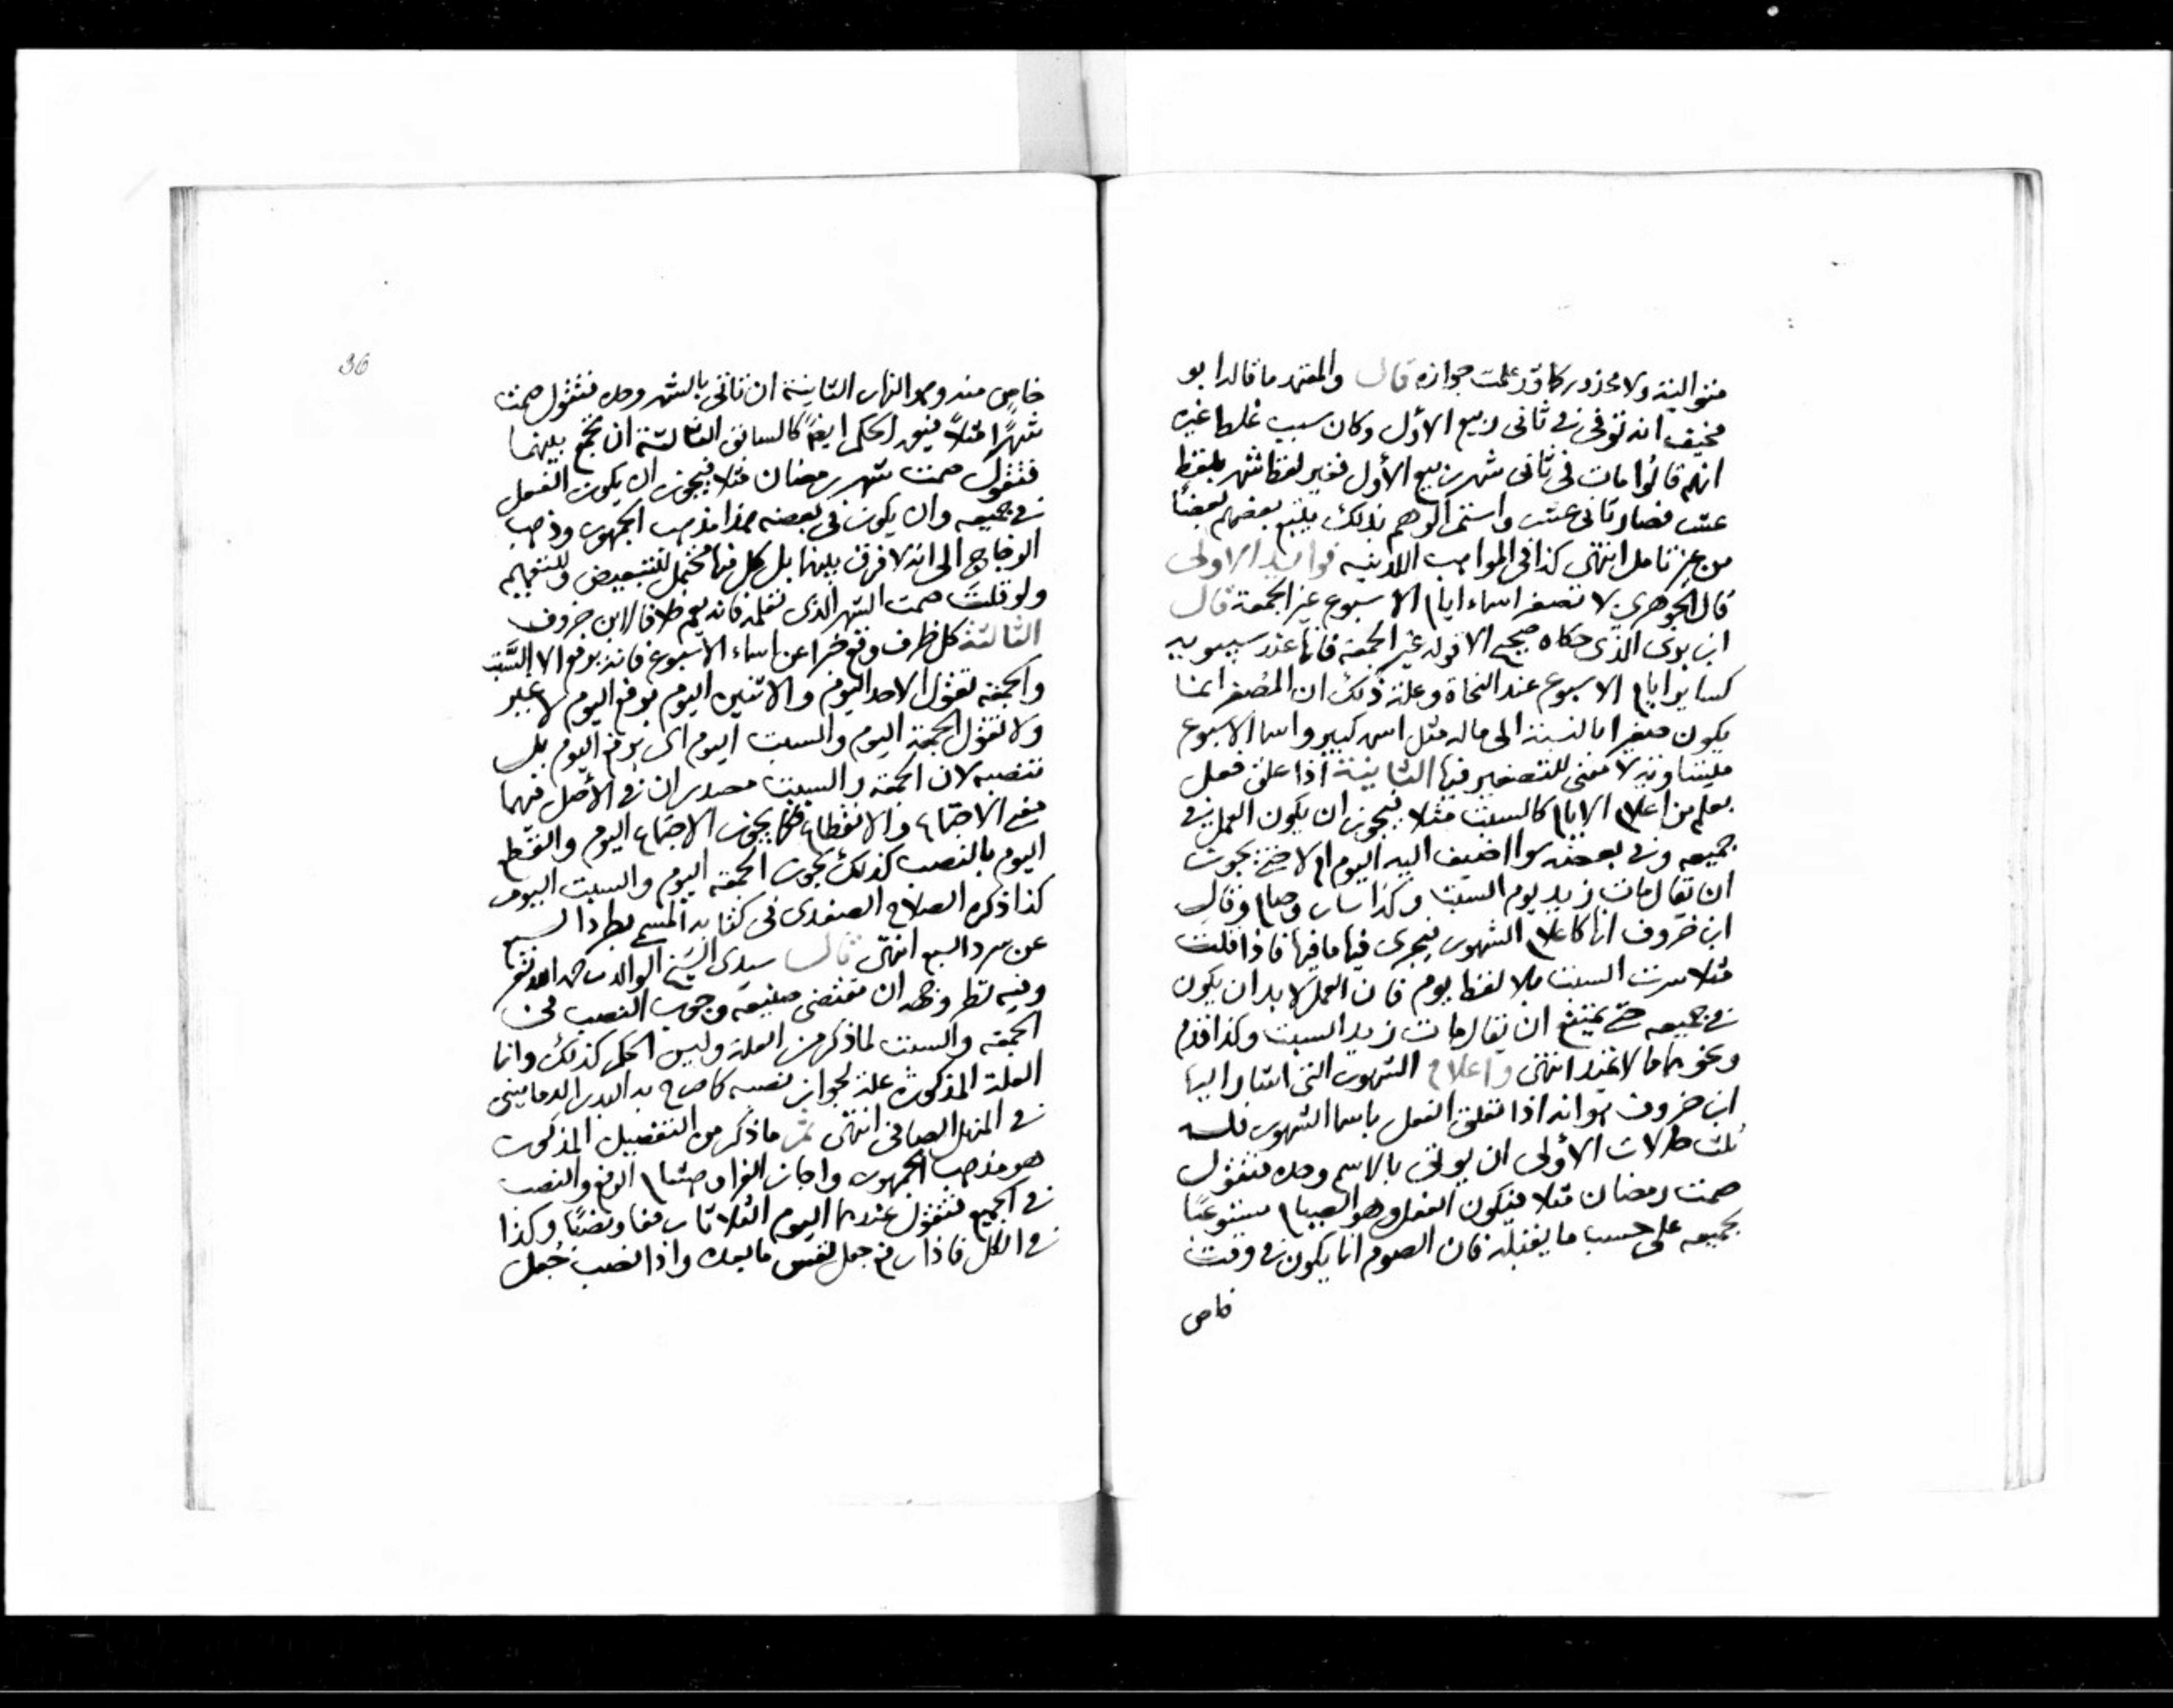 متوالية ولا محذور كما قد علمت جوازه قال والمعتمد ما قاله ابو
مخنف انه توفي في ثاني ربيع الاول وكان سبب غلط غيره
انهم قالوا مات في ثاني شهر ربيع الأول فغير لفظ شهر بلفظ
عشر فصار ثاني عشر واستمر الوهم بذلك يتبع بعضهم بعضًا
من غير تامل انتهى كذا في المواهب اللدنيه فوائد الاولى
قال الجوهري لا تصغر اسماء ايام الاسبوع غير الجمعة قال
ابن بري الذي حكاه صحيح الا قوله غير الجمعة فانها عند سيبويه
كساير ايام الاسبوع عند النحاة وعلة ذلك ان المصغر انما
يكون صغيرا بالنسبة الى ماله مثل اسمه كبير واسما الاسبوع
متساوية لا معنى للتصغير فيها الثانية اذا علق فعل
بعلم من اعلام الايام كالسبت مثلا فيجوز ان يكون العمل في
جميعه وفي بعضه سوا اضيف اليه اليوم ام لا حتى يجوز
ان تقال مات زيد يوم السبت وكذا سار وصام وقال
ابن خروف انها كاعلام الشهور فيجري فيها ما فيها فاذا قلت
مثلا سرت السبت بلا لفظ يوم فان العمل لا بد ان يكون
في جميعه حتى يمتنع ان يقال مات زيد السبت وكذا قدم
ونحوهما مما لا يمتد انتهى واعلام الشهور التي اشار اليها
ابن خروف هو انه اذا تعلق الفعل باسما الشهور فله
ثلث حالات الأولى ان يوتى بالاسم وحده فتقول
صمت رمضان مثلا فيكون الفعل وهو الصيام مستوعبًا
لجميعه على حسب ما يقبله فان الصوم انما يكون في وقت
خاص
36
خاص منه وهو النهار الثانية ان تاتي بالشهر وحده فتقول صمت
شهرًا مثلًا فيعم الحكم ايضًا كالسابق الثالثة ان تجمع بينهما
فتقول صمت شهر رمضان مثلا فيجوز ان يكون الفعل
في جميعه وان يكون في بعضه هذا مذهب الجمهور وذهب
الزجاج الى انه لا فرق بينهما بل كل منهما محتمل للتبعيض وللتعميم
ولو قلت صمت الشهر الذي تعلمه فانه يعم خلافا لابن خروف
الثالثة كل ظرف وقع خبرا عن اسماء الاسبوع فانه يرفع الا السبت
والجمعة تقول الاحد اليوم والاثنين اليوم برفع اليوم لا غير
ولا تقول الجمعة اليوم والسبت اليوم اي برفع اليوم بل
تنصبه لان الجمعة والسبت مصدران في الأصل فيهما
معنى الاجتماع والانقطاع فكما يجوز الاجتماع اليوم والقطع
اليوم بالنصب كذلك يجوز الجمعة اليوم والسبت اليوم
كذا ذكره الصلاح الصفدي في كتابه المسمى بطرد السبع
عن سرد السبع انتهى قال سيدي الشيخ الوالد رحمه الله تعالى
وفيه نظر وجهه ان مقتضى صنيعه وجوب النصب في
الجمعة والسبت لما ذكر من العلة وليس الحكم كذلك وانما
العلة المذكورة علة لجواز نصبه كما صرح به البدر الدماميني
في المنهل الصافي انتهى ثم ما ذكر من التفصيل المذكور
هو مذهب الجمهور واجاز الفراء وهشام الرفع والنصب
في الجميع فتقول عندهما اليوم الثلاثا رفعا ونصبًا وكذا
في الكل فاذا رفع جعل نفس ما بعده واذا نصب جُعل